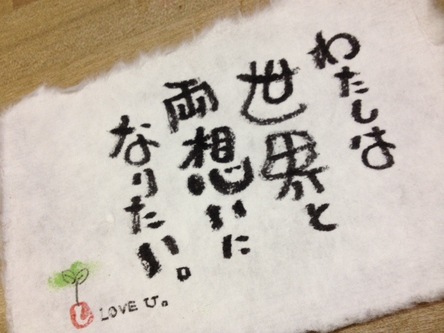 わたしは
世界と
両想いに
なりたい。
し
LOVE び。